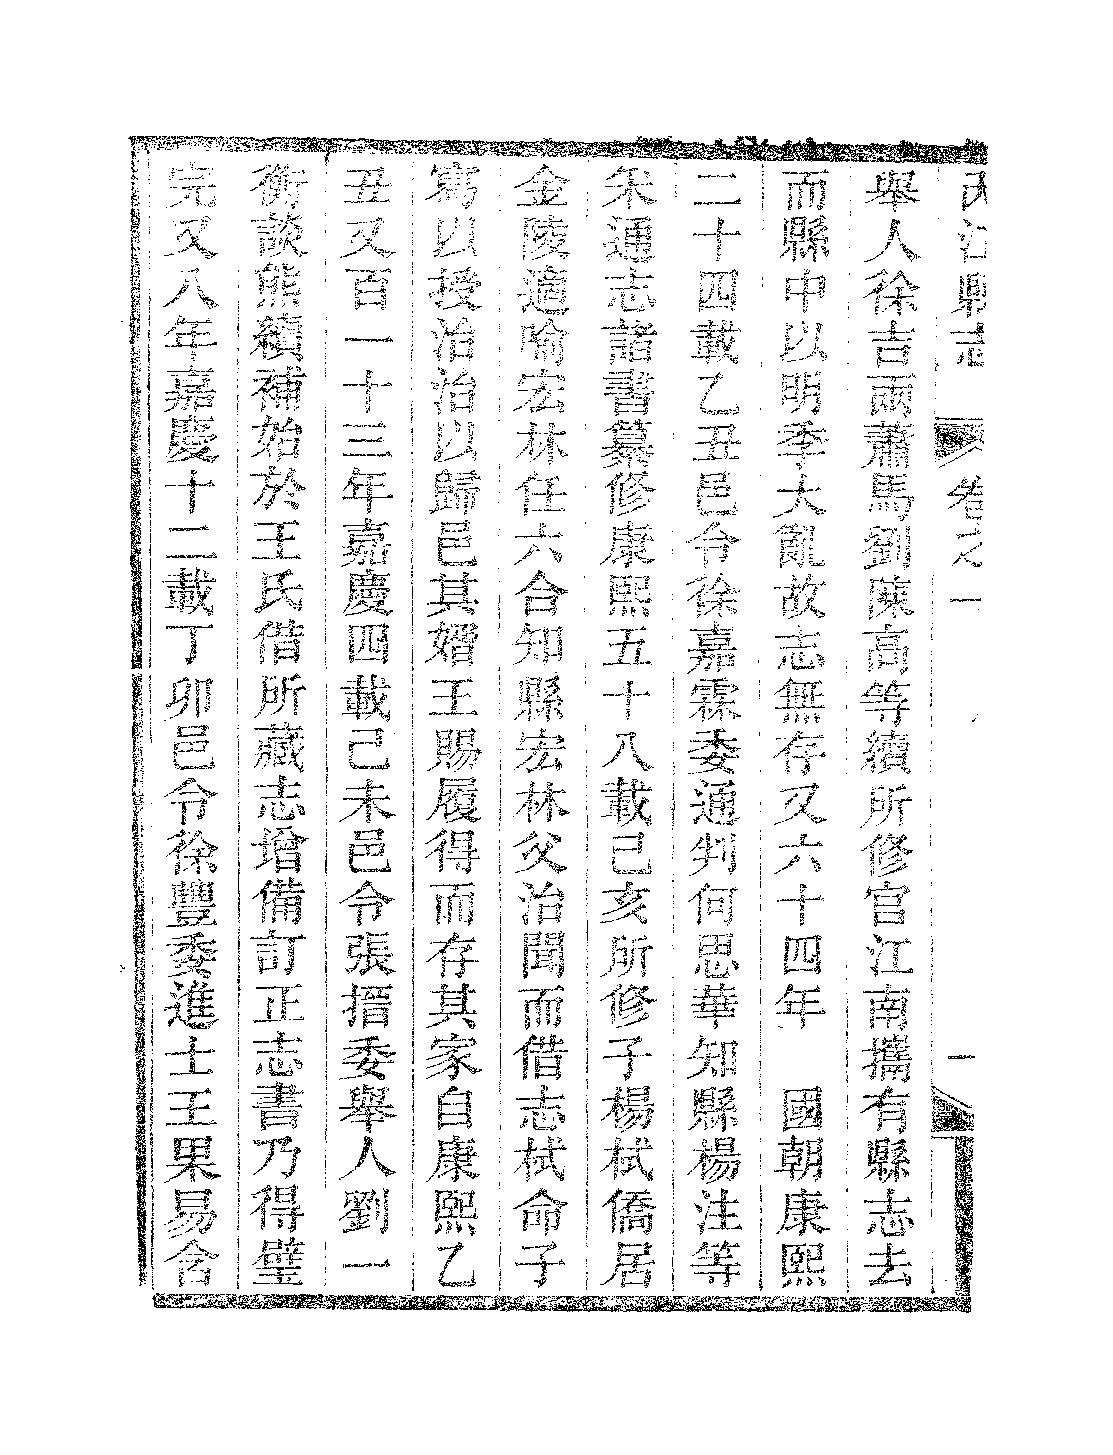 江縣志 卷之一 一
舉人徐吉雨蕭馬劉陳高等續所修官江南攜有縣志去
而縣中以明季大亂故志無存又六十四年 國朝康熙
二十四載乙丑邑令徐嘉霖委通判何思華知縣楊注等
采通志諸書纂修康熙五十八載己亥所修子楊栻僑居
金陵適喻宏林任六合知縣宏林父治聞而借志栻命子
寫以授治治以歸邑其婿王賜履得而存其家自康熙乙
丑又百一十三年嘉慶四載己未邑令張搢委舉人劉一
衡談熊續補始於王氏借所藏志增備訂正志書乃得璧
完又八年嘉慶十二載丁卯邑令徐豐委進士王果易含